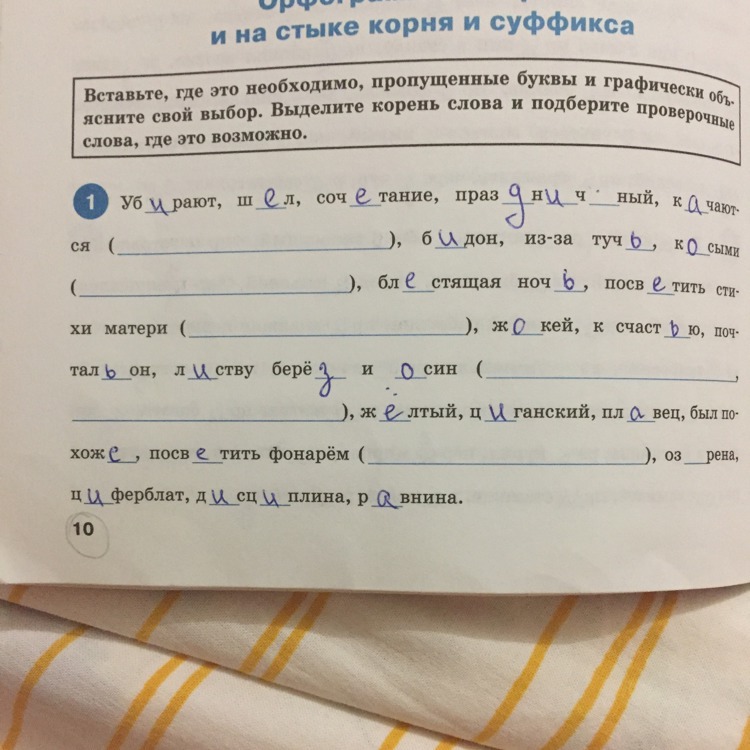 и на стыке корня и суффикса
Вставьте, где это необходимо, пропущенные буквы и графически объ-
ясните свой выбор. Выделите корень слова и подберите проверочные
слова, где это возможно.
1 Уб и рают, ш е л, соч е тание, праз д н и ч _ ный, к а чают-
ся ( ____ ), б и дон, из-за туч ь , к о сыми
( ____ ), бл е стящая ноч ь , посв е тить сти-
хи матери ( ____ ), ж о кей, к счаст ь ю, поч-
тал ь он, л и ству берё з и о син ( ____ ,
____ ), ж е лтый, ц и ганский, пл а вец, был по-
хож е , посв е тить фонарём ( ____ ), оз _ рена,
ц и ферблат, д и сц и плина, р а внина.
10